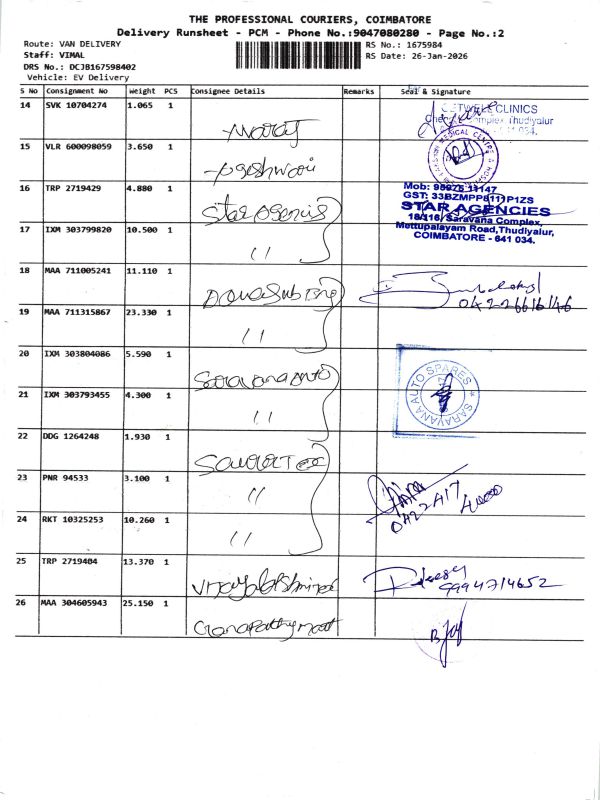 THE PROFESSIONAL COURIERS, COIMBATORE
Delivery Runsheet - PCM - Phone No.:9047080280 - Page No.:2
Route: VAN DELIVERY
RS No.: 1675984
Staff: VIMAL
RS Date: 26-Jan-2026
DRS No.: DCJB167598402
Vehicle: EV Delivery
S No Consignment No Weight PCS Consignee Details Remarks Seal & Signature
14 SVK 10704274 1.065 1
CLINICS
Complex, Thudiyalur
15 VLR 600098059 3.650 1
MEDICAL CENTRE
16 TRP 2719429 4.880 1 Star Agencies
GST: 33BZMPP8111P1ZS
STAR AGENCIES
18/116, Saravana Complex,
Mettupalayam Road, Thudiyalur,
COIMBATORE - 641 034.
17 IXM 303799820 10.500 1 "
18 MAA 711005241 11.110 1
04226616146
19 MAA 711315867 23.330 1 "
20 IXM 303804086 5.590 1 Saravana Auto
SARAVANA AUTO SPARES
21 IXM 303793455 4.300 1 "
22 DDG 1264248 1.930 1
23 PNR 94533 3.100 1 "
24 RKT 10325253 10.260 1 "
25 TRP 2719404 13.370 1
9994714652
26 MAA 304605943 25.150 1